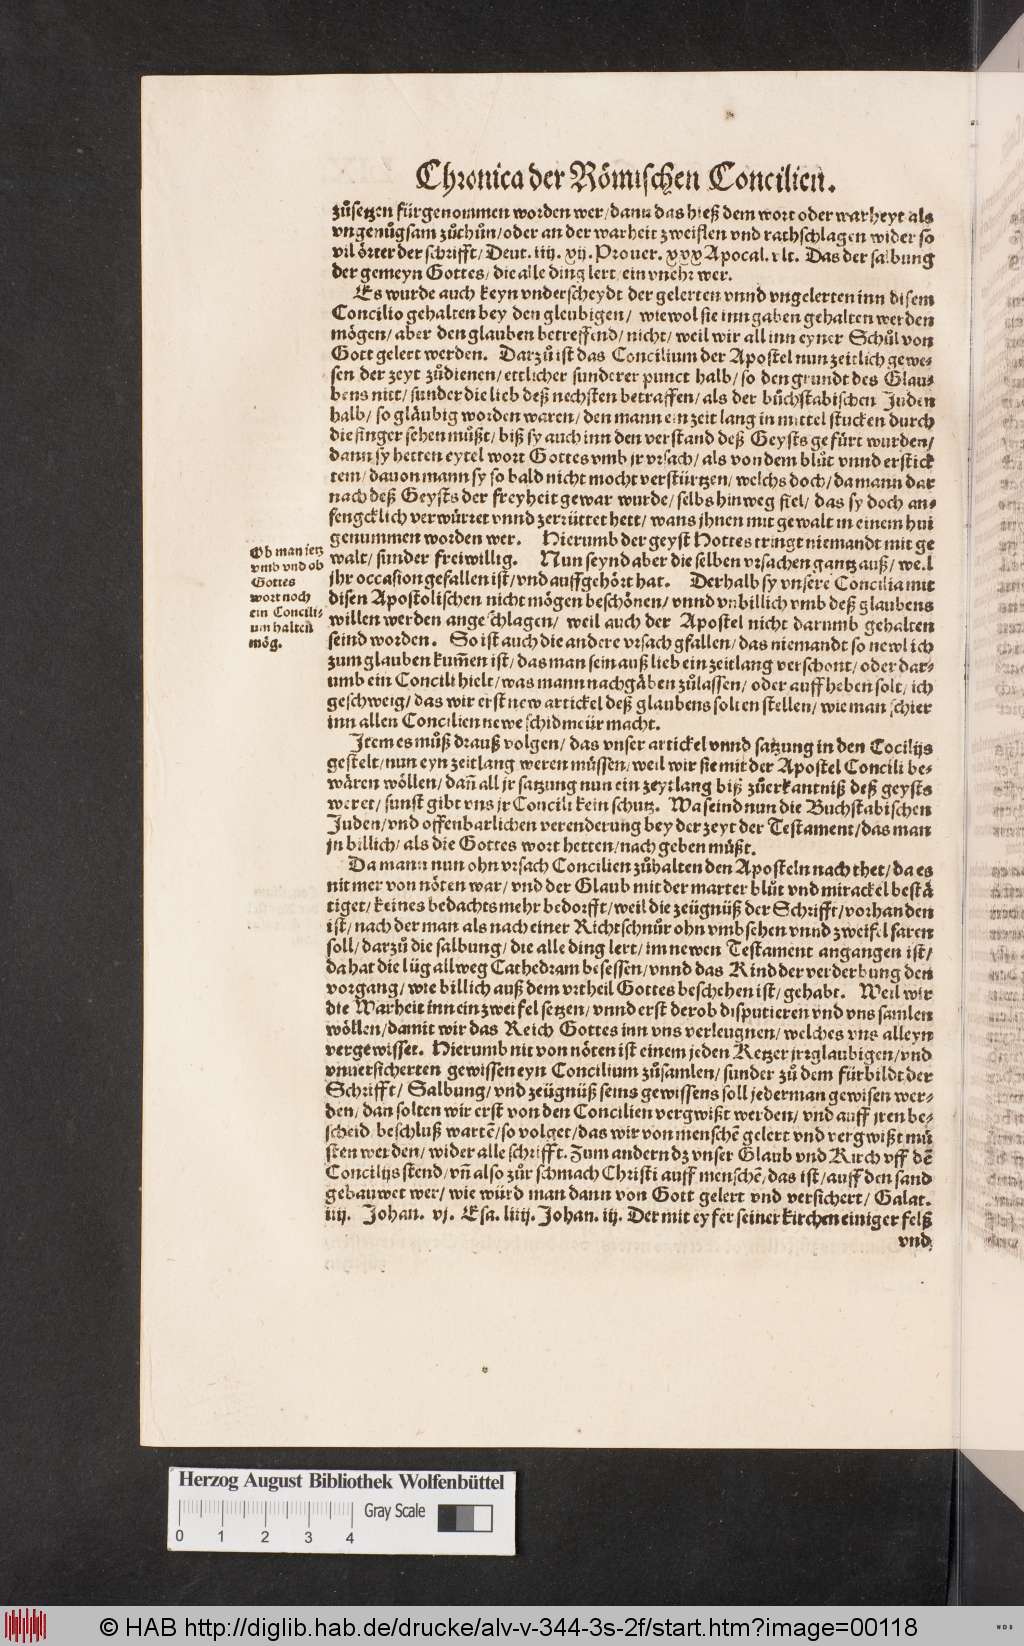 Chronica der Römischen Concilien.
zůsetzen fürgenommen worden wer/ dann das hieß dem wort oder warheyt als
vngenůgsam zůthůn/ oder an der warheit zweiflen vnd rathschlagen wider so
vil örter der schrifft/ Deut. iiij. xij. Prouer. xxx Apocal. vlt. Das der salbung
der gemeyn Gottes/ die alle ding lert/ ein vnehr wer.
Es wurde auch keyn vnderscheydt der gelerten vnnd vngelerten inn disem
Concilio gehalten bey den gleubigen/ wiewol sie inn gaben gehalten werden
mögen/ aber den glauben betreffend/ nicht/ weil wir all inn eyner Schůl von
Gott gelert werden. Darzů ist das Concilium der Apostel nun zeitlich gewe-
sen der zeyt zůdienen/ ettlicher sunderer punct halb/ so den grundt des Glau-
bens nitt/ sunder die lieb deß nechsten betraffen/ als der bůchstabischen Juden
halb/ so gläubig worden waren/ den mann ein zeit lang in mittel stucken durch
die finger sehen můßt/ biß sy auch inn den verstand deß Geysts gefürt wurden/
dann sy hetten eytel wort Gottes vmb jr vrsach/ als von dem blůt vnnd erstick
tem/ dauon mann sy so bald nicht mocht verstürtzen/ welchs doch/ da mann dar
nach deß Geysts der freyheit gewar wurde/ selbs hinweg fiel/ das sy doch an-
fengcklich verwürret vnnd zerrüttet hett/ wans jhnen mit gewalt in einem hui
genummen worden wer. Hierumb der geyst Gottes tringt niemandt mit ge
walt/ sunder freiwillig. Nun seynd aber die selben vrsachen gantz auß/ weil
jhr occasion gefallen ist/ vnd auffgehört hat. Derhalb sy vnsere Concilia mit
disen Apostolischen nicht mögen beschönen/ vnnd vnbillich vmb deß glaubens
willen werden angeschlagen/ weil auch der Apostel nicht darumb gehalten
seind worden. So ist auch die andere vrsach gfallen/ das niemandt so newlich
zum glauben kum̃en ist/ das man sein auß lieb ein zeitlang verschont/ oder dar-
umb ein Concili hielt/ was mann nachgäben zůlassen/ oder auff heben solt/ ich
geschweig/ das wir erst new artickel deß glaubens solten stellen/ wie man schier
inn allen Concilien newe schidmeür macht.
Ob man jetz
vmb vnd ob
Gottes
wort noch
ein Concili-
um halten
mög.
Item es můß drauß volgen/ das vnser artickel vnnd satzung in den Cocilijs
gestelt/ nun eyn zeitlang weren müssen/ weil wir sie mit der Apostel Concili be-
wären wöllen/ dañ all jr satzung nun ein zeytlang biß zůerkantniß deß geysts
weret/ sunst gibt vns jr Concili kein schutz. Wa seind nun die Buchstabischen
Juden/ vnd offenbarlichen verenderung bey der zeyt der Testament/ das man
jn billich/ als die Gottes wort hetten/ nach geben müßt.
Da mann nun ohn vrsach Concilien zůhalten den Aposteln nach thet/ da es
nit mer von nöten war/ vnd der Glaub mit der marter blůt vnd mirackel bestä
tiget/ keines bedachts mehr bedorfft/ weil die zeügnüß der Schrifft/ vorhanden
ist/ nach der man als nach einer Richtschnůr ohn vmbsehen vnnd zweifel faren
soll/ darzů die salbung/ die alle ding lert/ im newen Testament angangen ist/
da hat die lüg allweg Cathedram besessen/ vnnd das Kind der verderbung den
vorgang/ wie billich auß dem vrtheil Gottes beschehen ist/ gehabt. Weil wir
die Warheit inn ein zweifel setzen/ vnnd erst derob disputieren vnd vns samlen
wöllen/ damit wir das Reich Gottes inn vns verleugnen/ welches vns alleyn
vergewisset. Hierumb nit von nöten ist einem jeden Ketzer jrrglaubigen/ vnd
vnuersicherten gewissen eyn Concilium zůsamlen/ sunder zů dem fürbildt der
Schrifft/ Salbung/ vnd zeügnüß seins gewissens soll jederman gewisen wer-
den/ dan solten wir erst von den Concilien vergwißt werden/ vnd auff jren be-
scheid/ beschluß wartẽ/ so volget/ das wir von menschẽ gelert vnd vergwißt mü
sten werden/ wider alle schrifft. Zum andern dz vnser Glaub vnd Kirch vff dẽ
Concilijs stend/ vñ also zůr schmach Christi auff menschẽ/ das ist/ auff den sand
gebauwet wer/ wie würd man dann von Gott gelert vnd versichert/ Galat.
iiij. Johan. vj. Esa. liiij. Johan. iij. Der mit eyfer seiner kirchen einiger felß
vnd
Herzog August Bibliothek Wolfenbüttel
Gray Scale
0 1 2 3 4
© HAB http://diglib.hab.de/drucke/alv-v-344-3s-2f/start.htm?image=00118